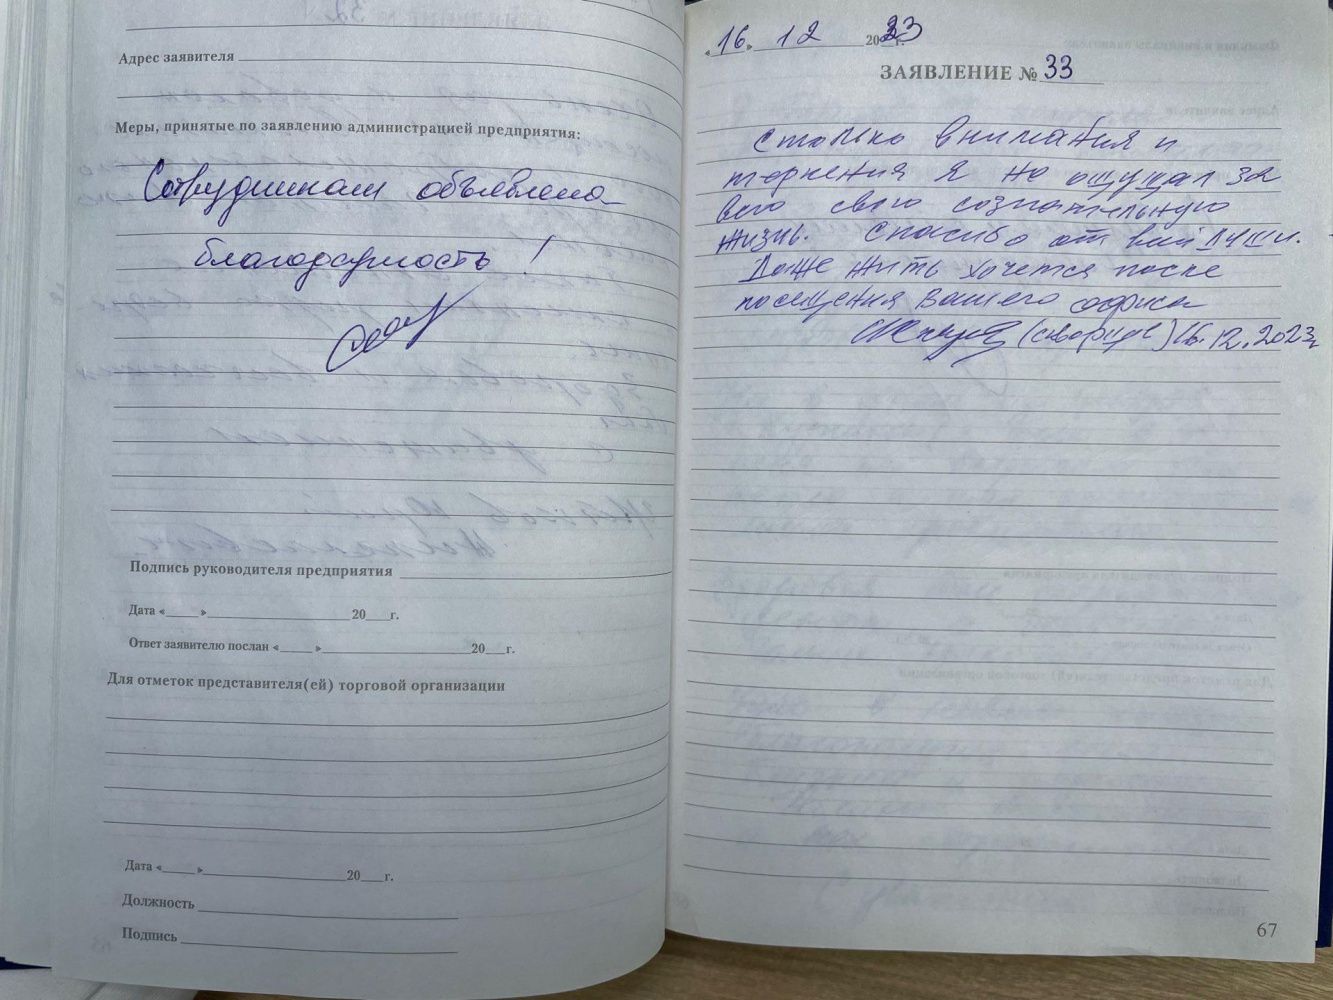 Адрес заявителя
Меры, принятые по заявлению администрацией предприятия:
Сотрудникам объявлена
благодарность !
Подпись руководителя предприятия
Дата «____»____________20___г.
Ответ заявителю послан «____»____________20___г.
Для отметок представителя(ей) торговой организации
Дата «____»____________20___г.
Должность
Подпись
«16» 12 2023г.
ЗАЯВЛЕНИЕ № 33
Столько внимания и
терпения я не ощущал за
всю свою сознательную
жизнь. Спасибо от всей души.
Даже жить хочется после
посещения Вашего офиса
16.12.2023г
67